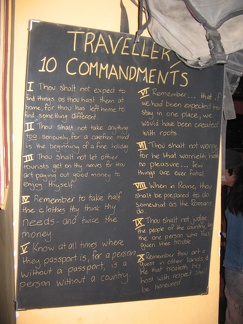 TRAVELLERS
10 COMMANDMENTS
I Thou shall not expect to
find things as thou hast them at
home, for thou has left home to
find something different
II Thou shall not take anything
too seriously, for a carefree mind
is the beginning of a fine holiday
III Thou shall not let other
tourists get on thy nerves for thou
art paying out good money to
enjoy thyself
IV Remember to take half
the clothes thy think thy
needs and twice the
money
V Know at all times where
they passport is, for a person
without a passport, is a
person without a country
VI Remember.... that if
we had been expected to
stay in one place, we
would have been created
with roots.
VII Thou shall not worry
for he that worrieth hath
no pleasure.... few
things are ever fatal
VIII When in Rome, thou
shall be prepared to do
somewhat as the Romans
do
IX Thou shall not judge
the people of the country by
the one person who has
given thee trouble
X Remember thou art a
guest in other lands &
he that treats his
host with respect shall
be honoured